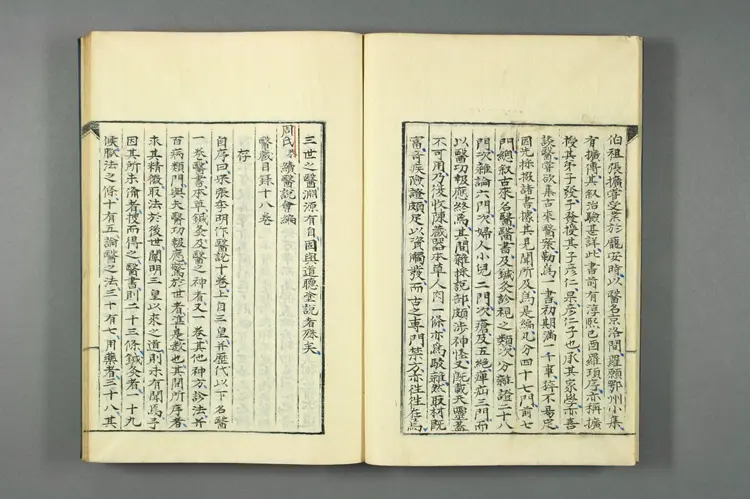 伯祖張擴嘗受業於龐安時以醫名京洛間羅願鄂州小集
有擴傳其叙治驗甚詳此書前有淳熙己酉羅頊序亦稱擴
授其弟子發子發授其子彦仁杲彦仁子也承其家學亦喜
談醫嘗欲集古來醫案勒為一書初期滿一千事猝不易足
因先採掇諸書據其見聞所及為是編凡分四十七門前七
門總叙古來名醫醫書及鍼灸診視之類次分雜證二十八
門次雜論六門次婦人小兒二門次瘡及五絶痺疝三門而
以醫功報應終焉其間雜採說部頗涉神怪又既載天靈蓋
不可用乃復收陳藏器本草人肉一條亦為駁雜然取材既
富奇疾險證頗足以資觸發而古之專門禁方亦徃徃在焉
三世之醫淵源有自固與道聽塗說者殊矣
周氏恭續醫說會編
醫藏目錄十八卷
存
自序曰宋張季明作醫說十卷上自三皇并歷代以下名醫
一卷醫書本草鍼灸及醫之神者又一卷其他神方診法并
百病類門與夫醫功報應驚於世者准是數也其間所序者
求其精微取法於後世闡明三皇以來之道則未有聞焉予
因其所未備者搜而得之醫書則二十三條鍼灸者一十九
候脈法之條十有五論醫之法三十有七用藥者三十八其